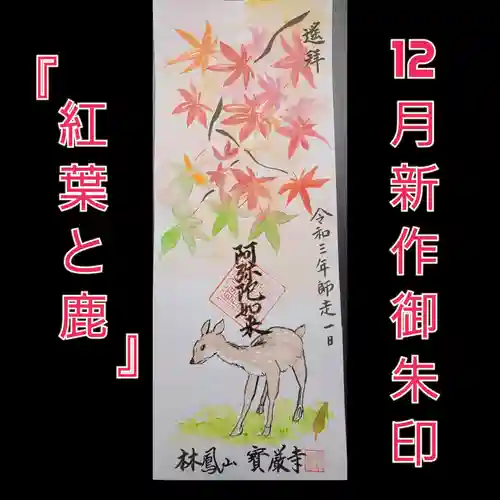 12月新作御朱印
遥拝
令和三年師走一日
阿弥陀如来
林鳳山 寶厳寺
『紅葉と鹿』